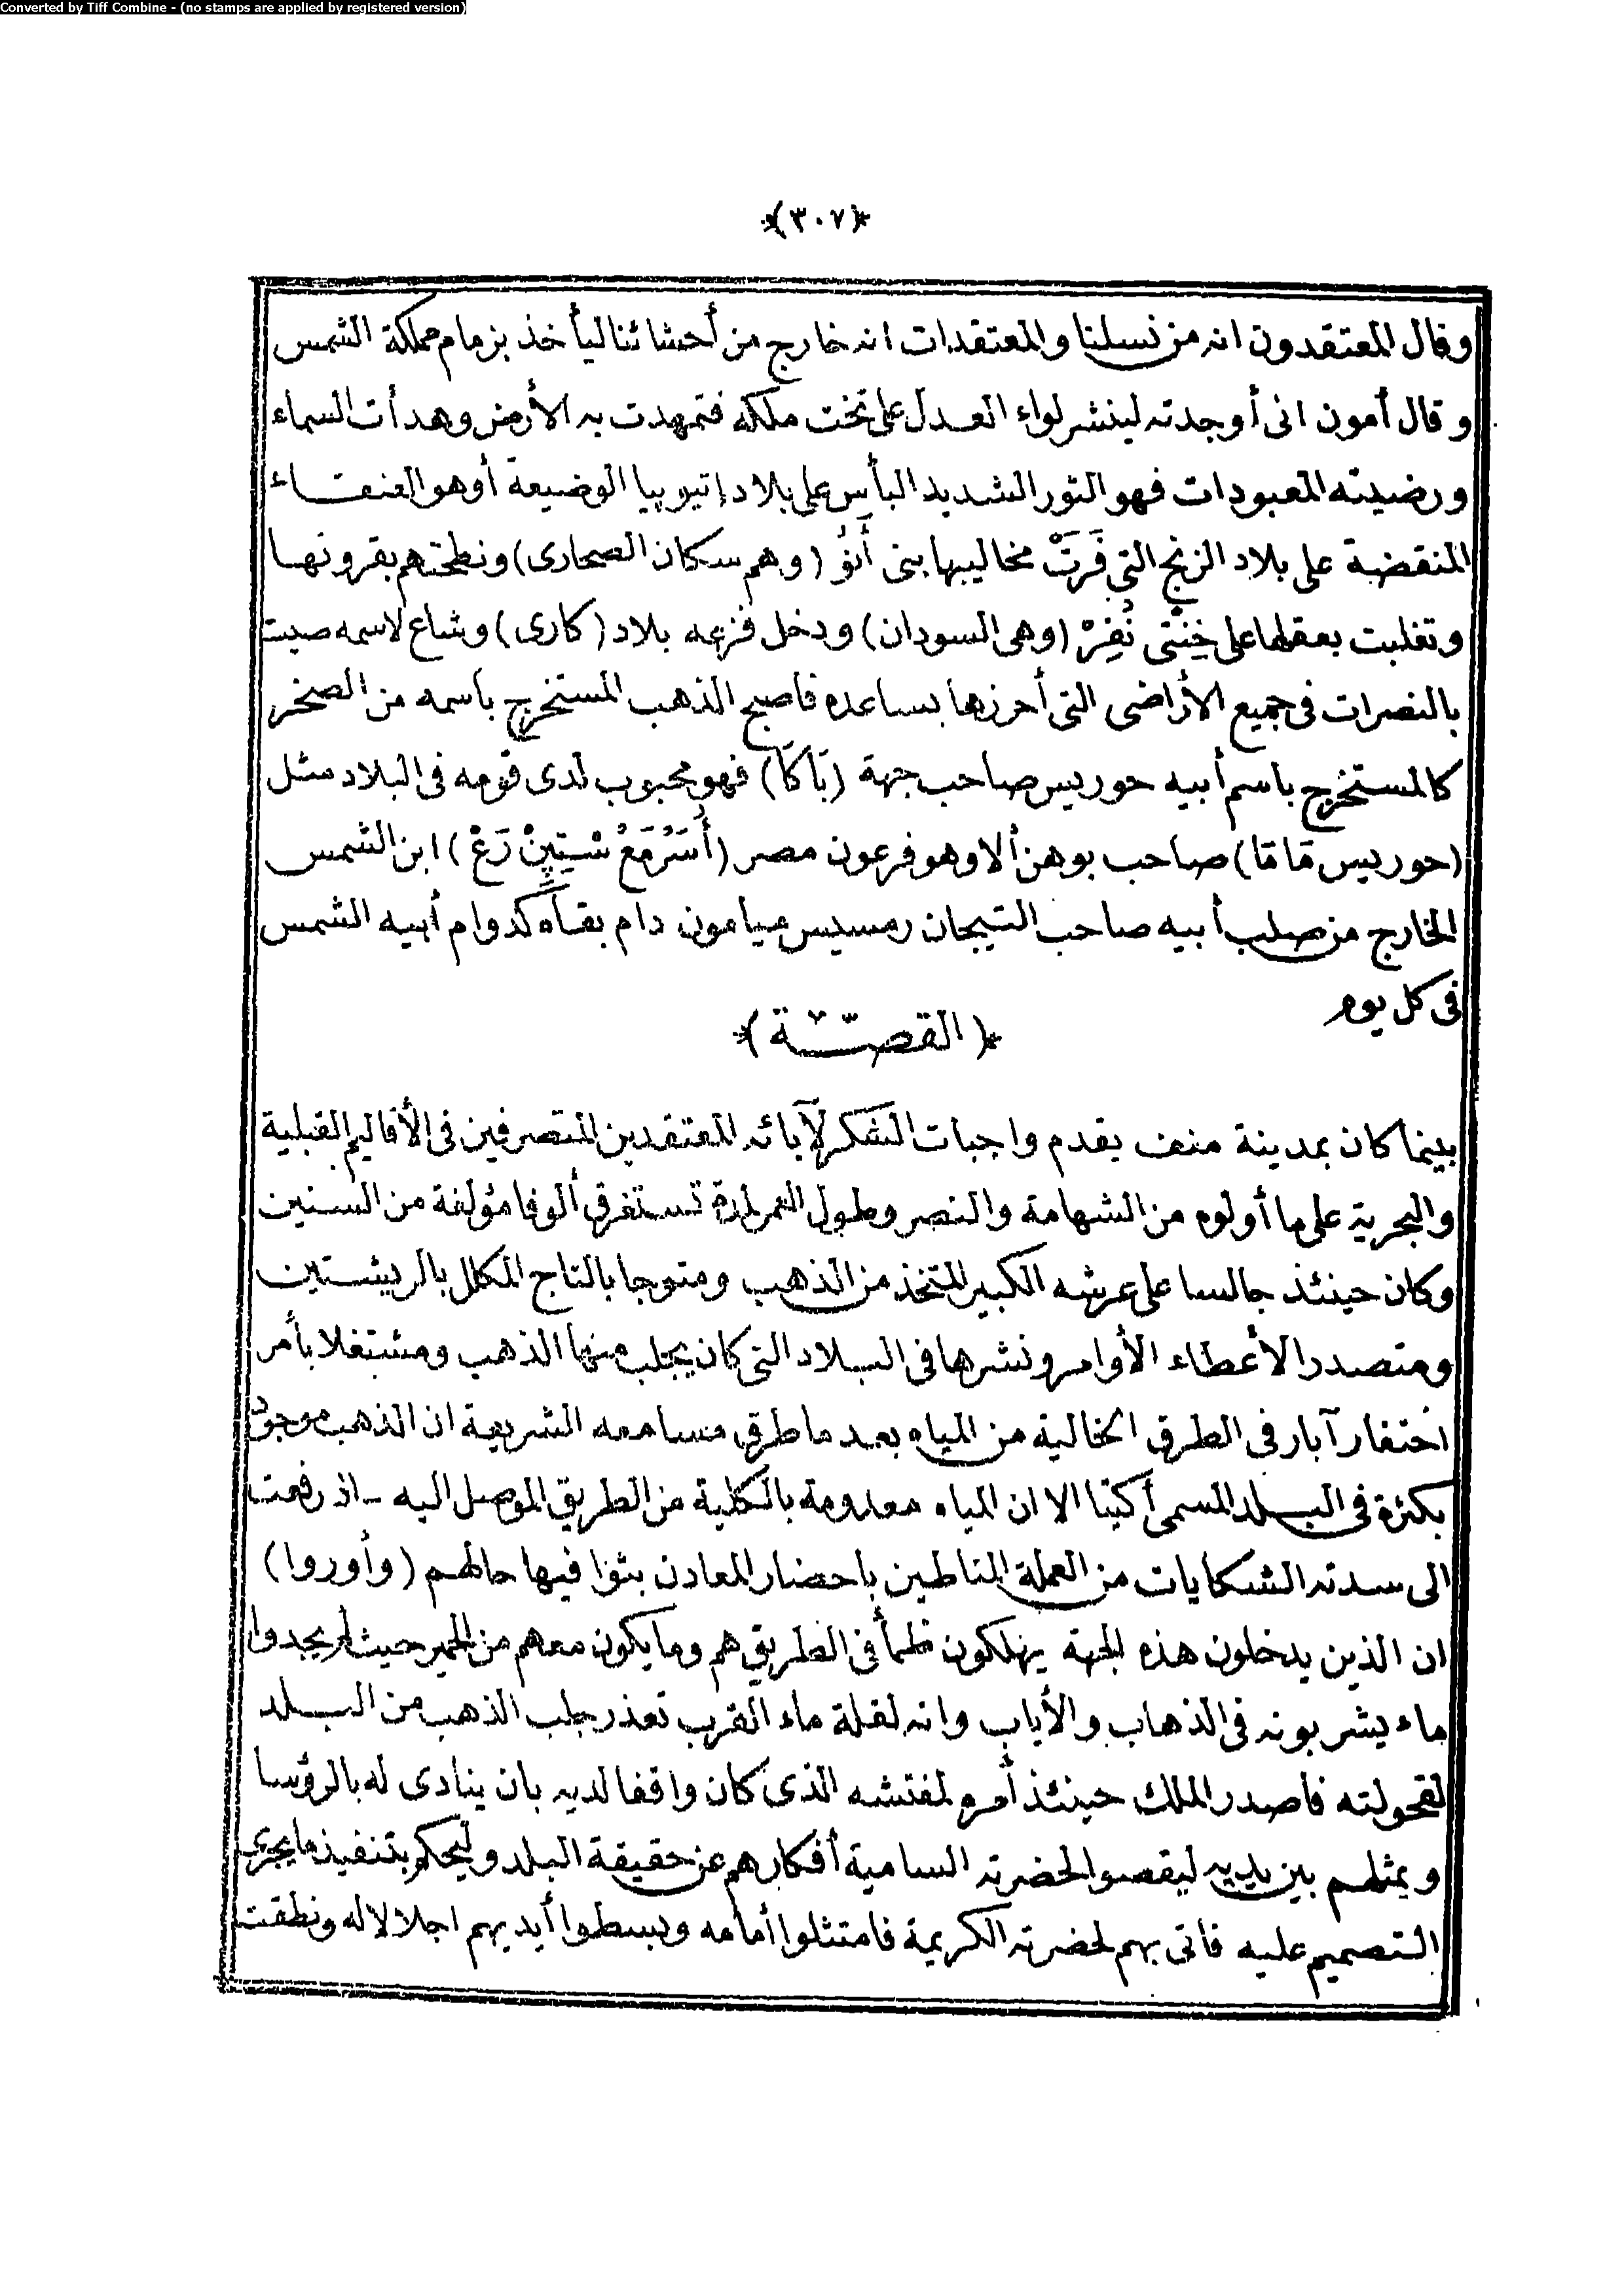 Converted by Tiff Combine - (no stamps are applied by registered version)
﴿٣٠٧﴾
وقال المعتقدون انه من نسلنا والمعتقدات انه خارج من أحشائنا ليأخذ بزمام مملكة الشمس
وقال أمون انى أوجدته لينشر لواء العدل على تخت ملكه فتمهدت به الأرض وهدأت السماء
ورضيته المعبودات فهو الثور الشديد البأس على بلاد إتيوبيا الوضيعة أوهو العنقاء
المنقضة على بلاد الزنج التى فَرَتْ مخاليبها بنى أَنوُ (وهم سكان الصحارى) ونطحتهم بقرونها
وتغلبت بعقلها على خِنْتى نُفِرْ (وهى السودان) ودخل فزعه بلاد (كارى) وشاع لاسمه صيت
بالنصرات فى جميع الأراضى التى أحرزها بساعده فاصبح الذهب المستخرج باسمه من الصخر
كالمستخرج باسم أبيه حوريس صاحب جهة (بَاكَا) فهو محبوب لدى قومه فى البلاد مثل
(حوريس مَامَا) صاحب بوهن ألا وهو فرعون مصر (أُسَرْمَعْ سْتِپِنْ رَعْ) ابن الشمس
الخارج من صلب أبيه صاحب التيجان رمسيس ميامون دام بقاه كدوام أبيه الشمس
فى كل يوم
﴿القصّة﴾
بينما كان بمدينة منف يقدم واجبات الشكر لآبائه المعتقدين المتصرفين فى الأقاليم القبلية
والبحرية على ما أولوه من الشهامة والنصر وطول العمر لمدة تستغرق ألوفا مؤلفة من السنين
وكان حينئذ جالسا على عرشه الكبير المتخذ من الذهب ومتوجا بالتاج المكلل بالريشتين
ومتصدرا لأعطاء الأوامر ونشرها فى البلاد التى كان يجلب منها الذهب ومشتغلا بأمر
احتفار آبار فى الطرق الخالية من المياه بعد ما طرق مسامعه الشريعة ان الذهب موجود
بكثرة فى البلد المسمى أكيتا الا ان المياه معدومة بالكلية من الطريق الموصل اليه - اذ رفعت
الى سدته الشكايات من العملة المناطين باحضار المعادن بثوا فيها حالهم (وأوروا)
ان الذين يدخلون هذه الجهة يهلكون ظمأ فى الطريق هم وما يكون معهم من الحمير حيث لم يجدوا
ماء يشربونه فى الذهاب والأياب وانه لقلة ماء القرب تعذر جلب الذهب من البلد
لقحولته فاصدر الملك حينئذ أمره لمفتشه الذى كان واقفا لديه بان ينادى له بالرؤسا
ويمثلهم بين يديه ليقصوا لحضرته السامية أفكارهم عن حقيقة البلد وليحكم بتنفيذ ما يجرى
التصميم عليه فاتى بهم لحضرته الكريمة فامتثلوا أمامه وبسطوا أيديهم اجلالا له ونطقت